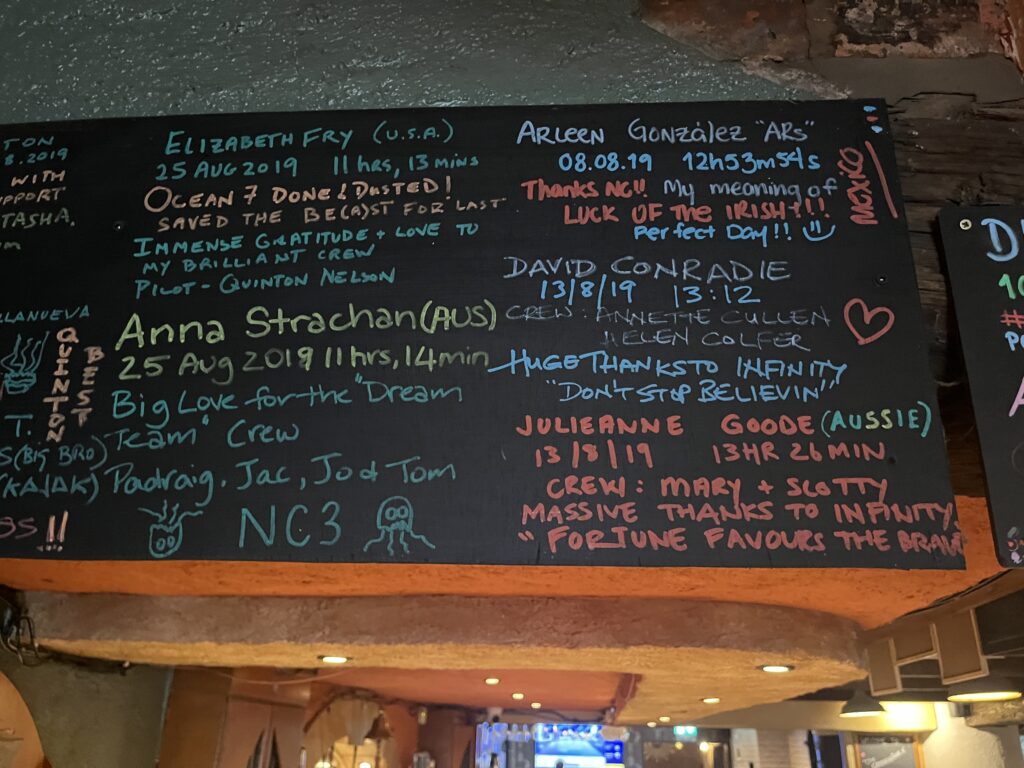 TON
8.2019
WITH
PPORT
TASHA.
LLANUEVA
QUINTON
BEST
T.
S (BIG BIRD)
(KAJAK)
BS !!
ELIZABETH FRY (U.S.A.)
25 AUG 2019 11 hrs, 13 mins
OCEAN 7 DONE! DUSTED!
SAVED THE BE(A)ST FOR "LAST"
IMMENSE GRATITUDE + LOVE TO
MY BRILLIANT CREW
PILOT - QUINTON NELSON
Anna Strachan (AUS)
25 Aug 2019 11 hrs, 14 min
Big Love for the "Dream
Team" Crew
Padraig, Jac, Jo & Tom
NC3
ARLEEN González "ARs"
08.08.19 12h53m54s
Thanks NC!! My meaning of
LUCK OF THE IRISH!!!
Perfect Day!!
MEXICO
DAVID CONRADIE
13/8/19 13:12
CREW: ANNETTE CULLEN
HELEN COLFER
HUGE THANKS TO INFINITY
"DON'T STOP BELIEVIN'"
JULIEANNE GOODE (AUSSIE)
13/8/19 13HR 26MIN
CREW: MARY + SCOTTY
MASSIVE THANKS TO INFINITY
"FORTUNE FAVOURS THE BRAVE
D
10
#
Po
A